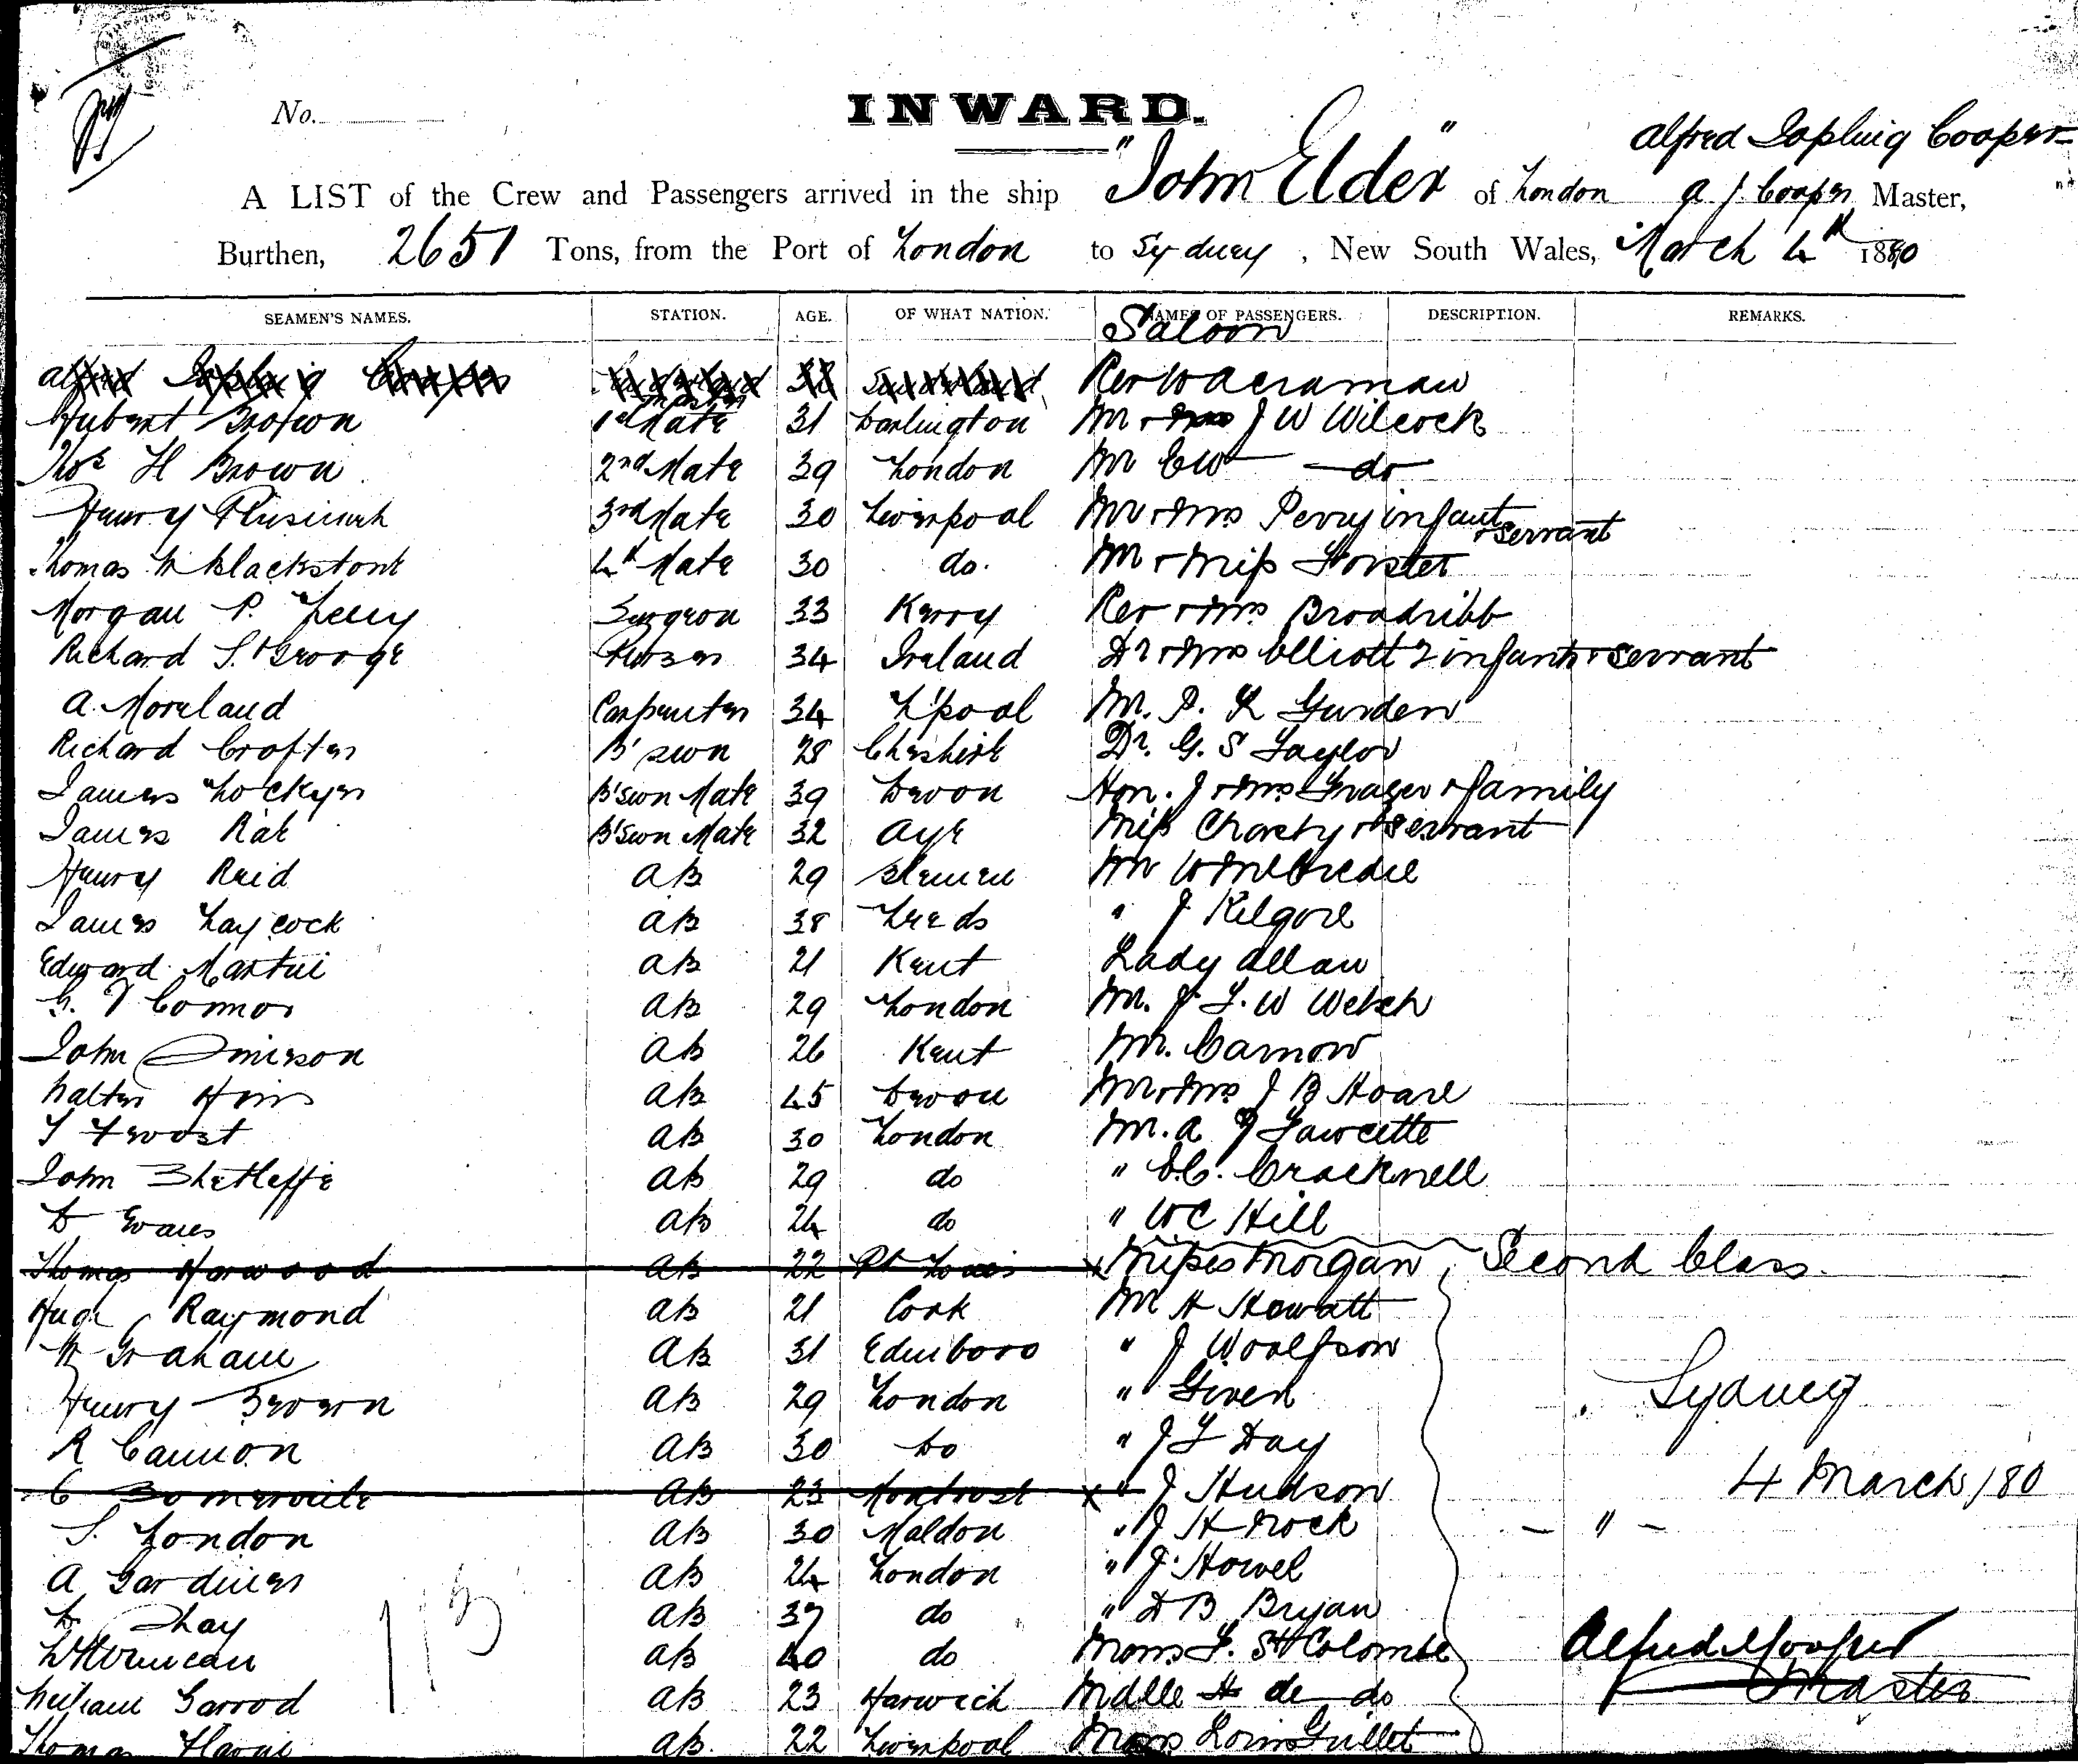 No.
INWARD.
Alfred Jopling Cooper
A LIST of the Crew and Passengers arrived in the ship "John Elder" of London A J. Cooper Master,
Burthen, 2651 Tons, from the Port of London to Sydney, New South Wales, March 4th 1880
SEAMEN'S NAMES. STATION. AGE. OF WHAT NATION. NAMES OF PASSENGERS. DESCRIPTION. REMARKS.
Saloon
38 Rev W Acraman
Hubert Brown 1st Mate 31 Darlington Mr J W Wilcock
Thos H Brown 2nd Mate 39 London Mr CW do
Henry 3rd Mate 30 Liverpool Mr & Mrs Perry infant & servant
Thomas W Blackstone 4th Mate 30 do. Mr & Miss Forster
Morgan P. Surgeon 33 Kerry Rev & Mrs Broadribb
Richard St George Purser 34 Ireland Dr & Mrs Elliott 2 infants & servant
A. Moreland Carpenter 34 L'pool Mr. P. R Gurden
Richard Crofter B'swn 28 Cheshire Dr. G. S Taylor
James Lockyer B'swn Mate 39 Devon Hon. J & Mrs Frazer & family
James Rae B'swn Mate 32 Ayr Miss & servant
Henry Reid AB 29 Mr W McCredie
James Laycock AB 38 Leeds " J Kilgore
Edward Martin AB 21 Kent Lady Allan
G. T Connor AB 29 London Mr. J. F. W Welsh
John Simeson AB 26 Kent Mr. Carnow
Walter AB 45 Devon Mr & Mrs J B Hoare
T Frost AB 30 London Mr. A J Fawcette
John AB 29 do " E.C. Cracknell
D Evans AB 24 do " W C Hill
Thomas Harwood AB 22 Pt Louis x Misses Morgan Second Class.
Hugh Raymond AB 21 Cork Mr H Howatt
W Graham AB 31 Edinboro " J Woolfson
Sydney
Henry Brown AB 29 London " Given
R Cannon AB 30 Do " J F Day
4 March / 80
C Somerville AB 23 Montrose x " J Hudson
S. London AB 30 Maldon " J H Rock - " -
A Gardiner AB 24 London " J. Howel
D. Shay AB 37 do " D B Bryan
W Duncan AB 40 do Mons F. St Colombe
Alfred J Cooper
Master
William Garrod AB 23 Harwich Mdlle de do
Thomas AB. 22 Liverpool Mons Louis Gullet
113